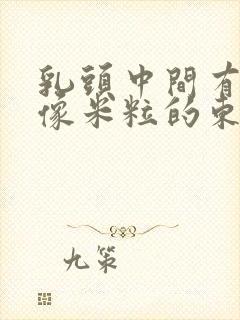 乳頭中間有
像米粒的東
九策